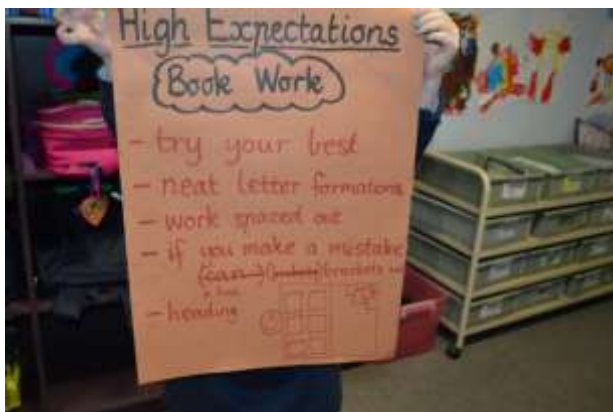 High Expectations
Book Work
- try your best
- neat letter formations
- work spaced out
- if you make a mistake
(can) brackets
- heading